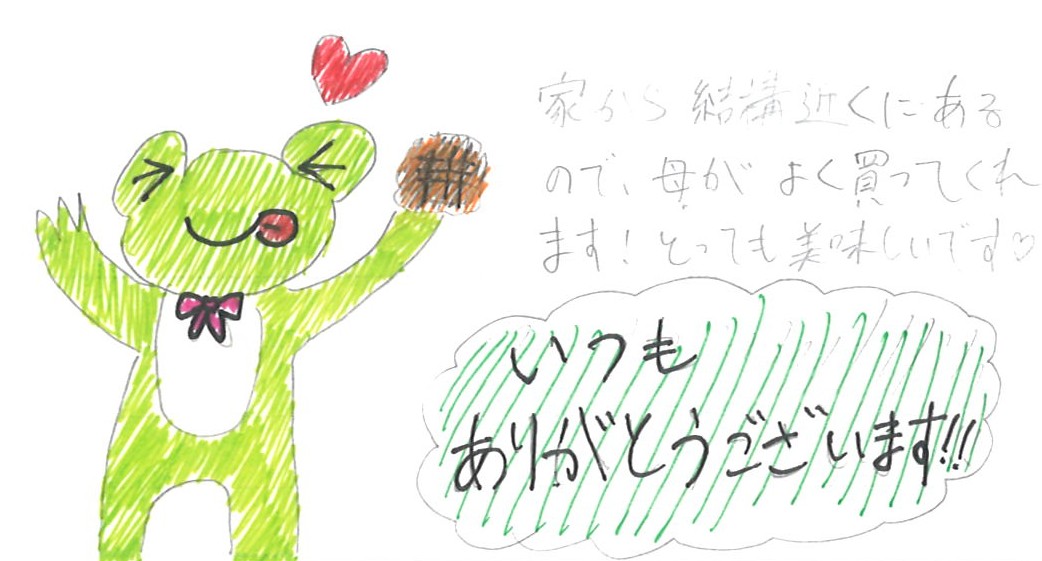 家から結構近くにある
ので、母がよく買ってくれ
ます！とっても美味しいです♡
いつも
ありがとうございます!!